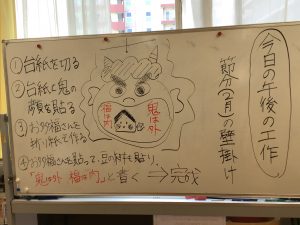 今日の午後の工作
節分(2月)の壁掛け
①台紙を切る
②台紙に鬼の
顔を貼る
③お多福さんを
折り紙で作る
④お多福さんを貼って、豆の材料も貼り、
「鬼は外 福は内」と書く ⇒完成
福は内
鬼は外